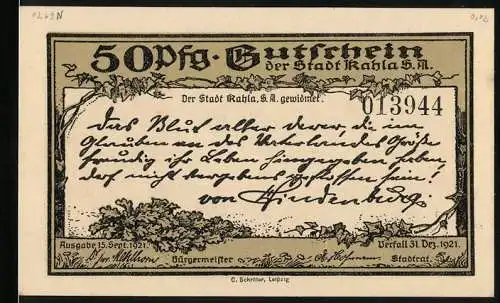 50 Pfg. Gutschein
der Stadt Kahla S.A.
Der Stadt Kahla, S.A. gewidmet.
013944
Das Blut aller derer, die im
Glauben an des Vaterlandes Größe
freudig ihr Leben hingegeben haben
darf nicht vergebens geflossen sein!
von Hindenburg
Ausgabe 15. Sept. 1921.
Bürgermeister
Verfall 31. Dez. 1921.
Stadtrat.
C. Schröter, Leipzig